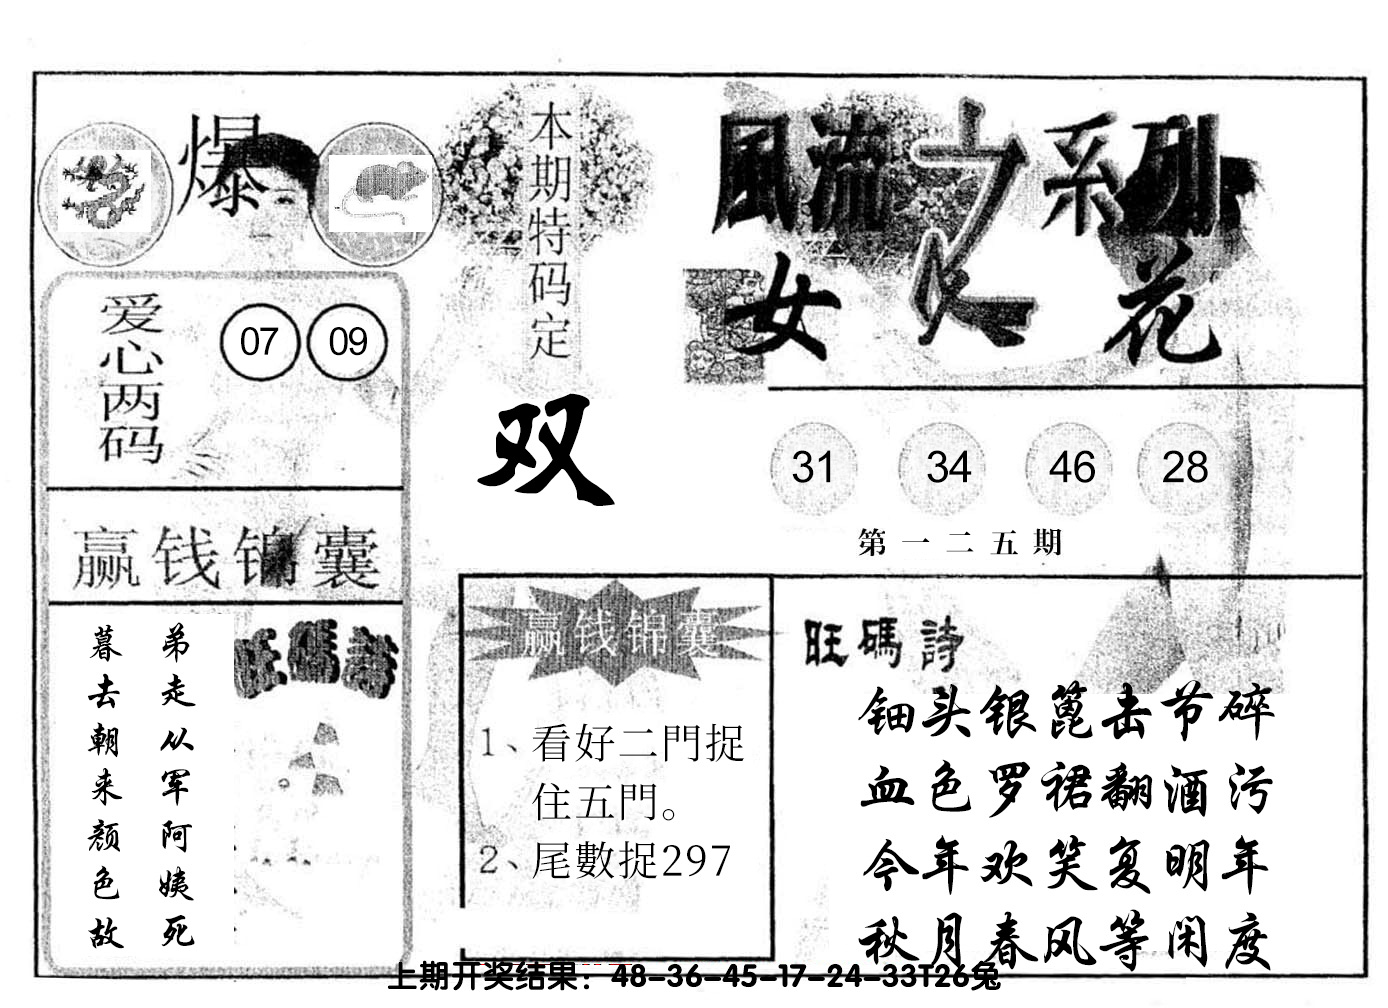 爆
本期特码定
双
風流之系列
女人花
爱心两码
07 09
31 34 46 28
第一二五期
赢钱锦囊
旺碼詩
弟走从军阿姨死
暮去朝来颜色故
赢钱锦囊
1、看好二門捉
住五門。
2、尾數捉297
旺碼詩
钿头银蓖击节碎
血色罗裙翻酒污
今年欢笑复明年
秋月春风等闲度
上期开奖结果：48-36-45-17-24-33T26兔